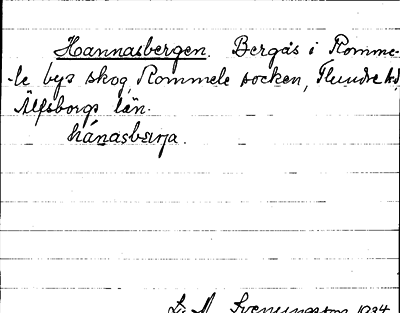 Hannasbergen. Bergås i Romme-
-le bys skog, Rommele socken, Flundre hd,
Älfsborgs län.
hánasbærja.